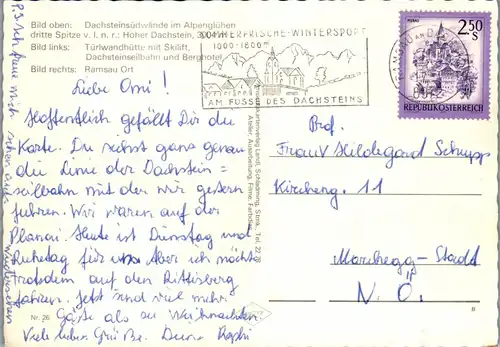 Bild oben: Dachsteinsüdwände im Alpenglühen
dritte Spitze v. l. n. r.: Hoher Dachstein, 3004 m
Bild links: Türlwandhütte mit Skilift,
Dachsteinseilbahn und Berghotel
Bild rechts: Ramsau Ort
WINTERSPORT
1000-1800m
AM FUSSE DES DACHSTEINS
RAMSAU AM
2.50
S
REPUBLIK ÖSTERREICH
Liebe Omi!
Hoffentlich gefällt Dir die
Karte. Du siehst ganz genau
die Linie der Dachstein=
seilbahn mit der wir gestern
fuhren. Wir waren auf der
Planai. Heute ist Dienstag und
Ruhetag für uns. Aber ich möchte
trotzdem auf den Rittisberg
fahren. Jetzt sind viel mehr
Gäste als zu Weihnachten.
Viele liebe Grüße. Deine
P.S. Ich freue mich schon aufs
Schladming, Stmk., Tel. 22 78
Frau Hildegard Schupp
Kircheng. 11
Marchegg-Stadt
N. Ö.
Nr. 26